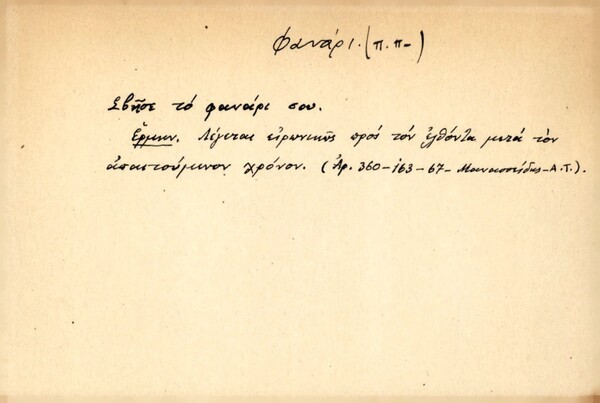 Φανάρι. (π.π-)
Σβῆσε τό φανάρι σου.
Ἑρμην. Λέγεται εἰρωνικῶς πρός τόν ἐλθόντα μετά τόν
ἀπαιτούμενον χρόνον. (Ἀρ. 360-163-67- Μανασσείδης-Α.Τ.).